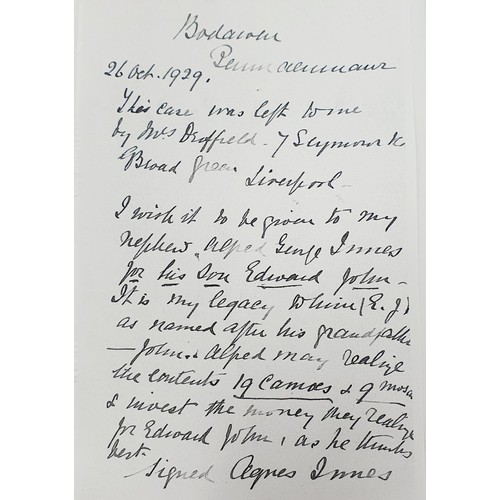 Bodawen
Penmaenmawr
26 Oct. 1929.
This case was left to me
by Mrs Duffield - 7 Seymour
Broad Green
Liverpool -
I wish it to be given to my
nephew, Alfred George Innes
for his Son Edward John -
It is my legacy to him (E. J)
as named after his grandfather
- John. Alfred may realize
the contents 19 Cameos & 9 mosaic
& invest the money they realize
for Edward John, as he thinks
best -
Signed Agnes Innes